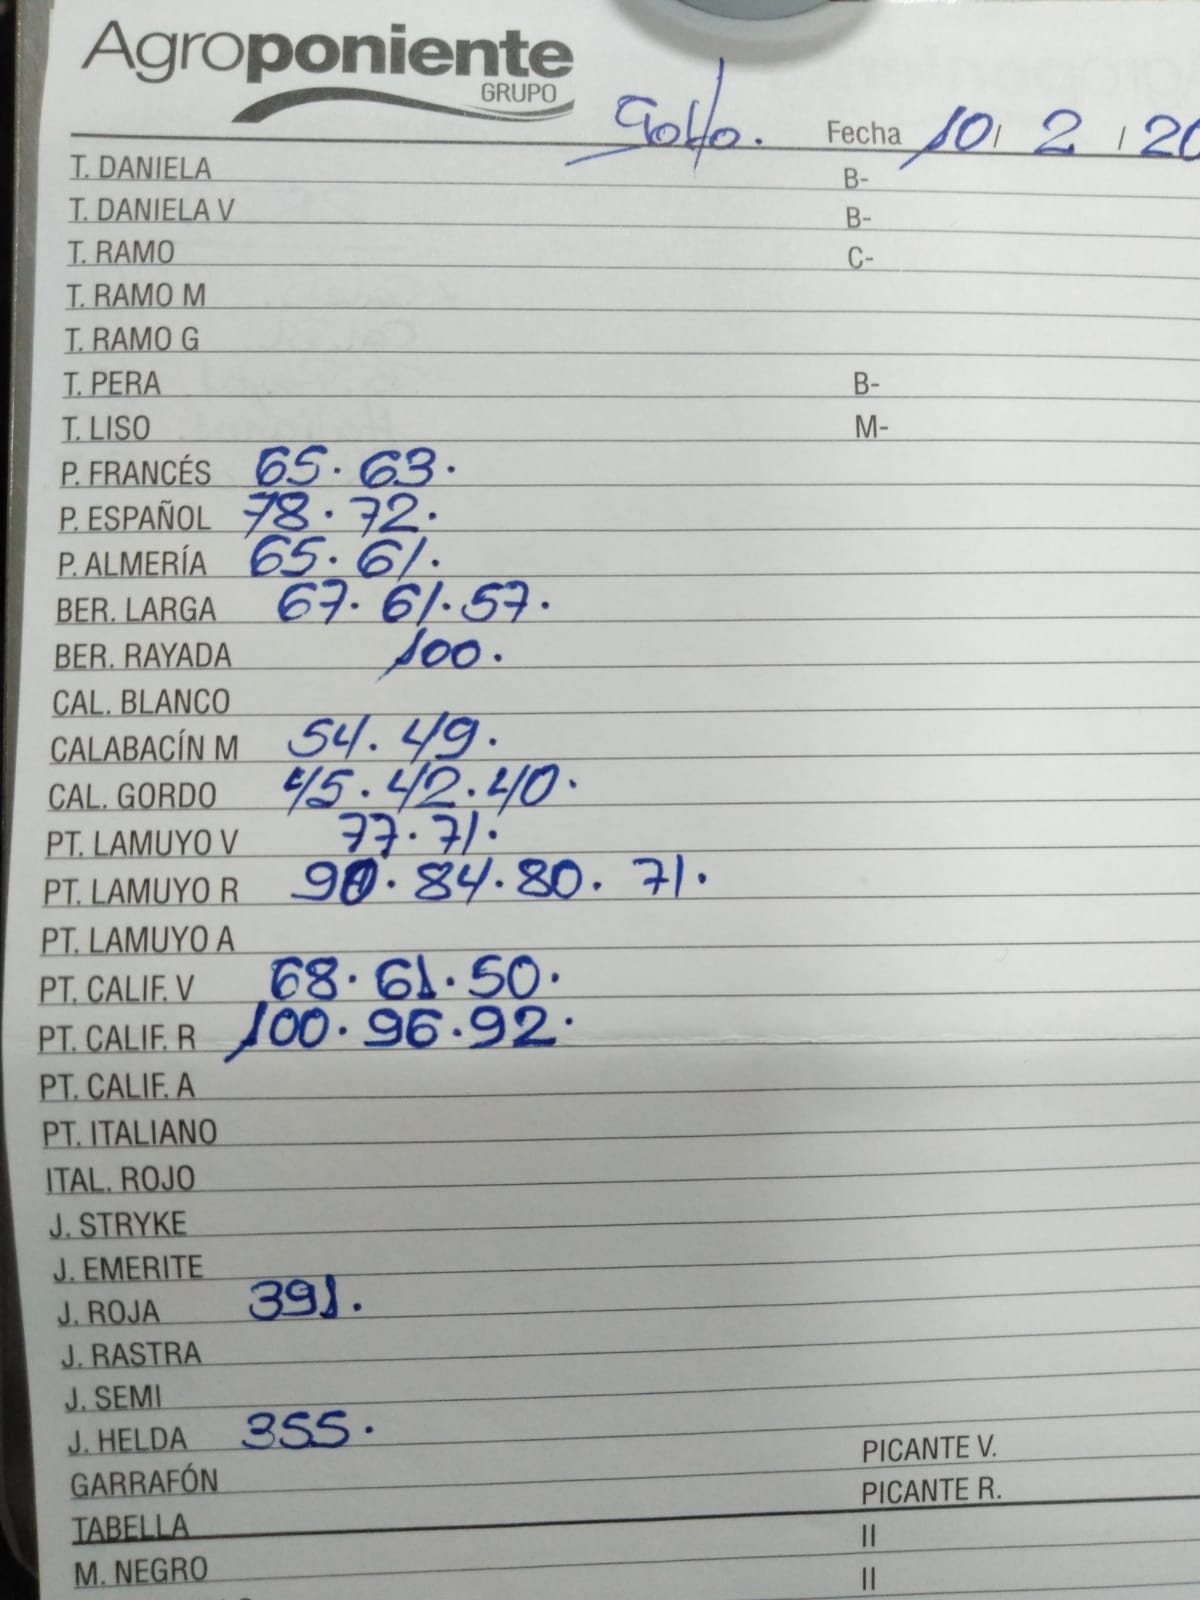 Agroponiente
GRUPO
Golfo. Fecha 10/ 2 / 20
T. DANIELA B-
T. DANIELA V B-
T. RAMO C-
T. RAMO M
T. RAMO G
T. PERA B-
T. LISO M-
P. FRANCÉS 65. 63.
P. ESPAÑOL 78. 72.
P. ALMERÍA 65. 61.
BER. LARGA 67. 61. 57.
BER. RAYADA 100.
CAL. BLANCO
CALABACÍN M 54. 49.
CAL. GORDO 45. 42. 40.
PT. LAMUYO V 77. 71.
PT. LAMUYO R 90. 84. 80. 71.
PT. LAMUYO A
PT. CALIF. V 68. 61. 50.
PT. CALIF. R 100. 96. 92.
PT. CALIF. A
PT. ITALIANO
ITAL. ROJO
J. STRYKE
J. EMERITE
J. ROJA 391.
J. RASTRA
J. SEMI
J. HELDA 355.
GARRAFÓN PICANTE V.
TABELLA PICANTE R.
M. NEGRO II
II